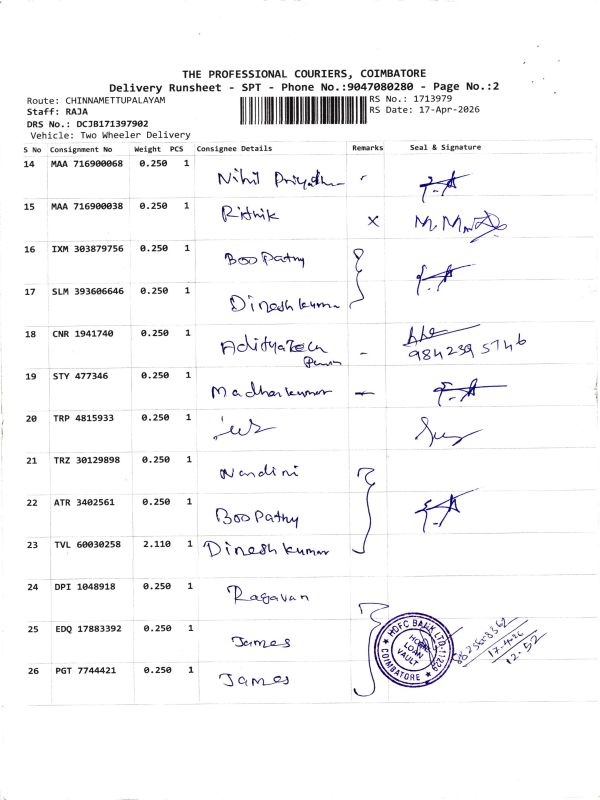 THE PROFESSIONAL COURIERS, COIMBATORE
Delivery Runsheet - SPT - Phone No.:9047080280 - Page No.:2
Route: CHINNAMETTUPALAYAM
RS No.: 1713979
Staff: RAJA
RS Date: 17-Apr-2026
DRS No.: DCJB171397902
Vehicle: Two Wheeler Delivery
S No Consignment No Weight PCS Consignee Details Remarks Seal & Signature
14 MAA 716900068 0.250 1 Nihil
15 MAA 716900038 0.250 1 Rithik x
16 IXM 303879756 0.250 1 Boopathy
17 SLM 393606646 0.250 1 Dineshkumar
18 CNR 1941740 0.250 1 Adityatech -
984239 5746
19 STY 477346 0.250 1 Madhankumar -
20 TRP 4815933 0.250 1
21 TRZ 30129898 0.250 1 Nandini
22 ATR 3402561 0.250 1 Boopathy
23 TVL 60030258 2.110 1 Dineshkumar
24 DPI 1048918 0.250 1 Ragavan
25 EDQ 17883392 0.250 1 James
HDFC BANK LTD
LOAN
VAULT
COIMBATORE
17.4.26
12.52
26 PGT 7744421 0.250 1 James